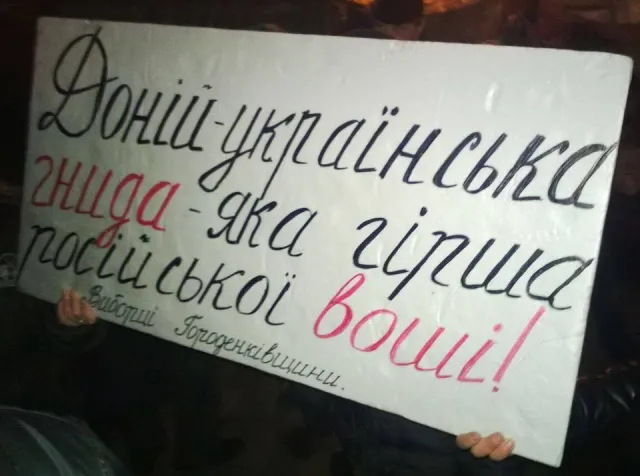 Доній-українська
гнида-яка гірша
російської воші!
Виборці Городенківщини.